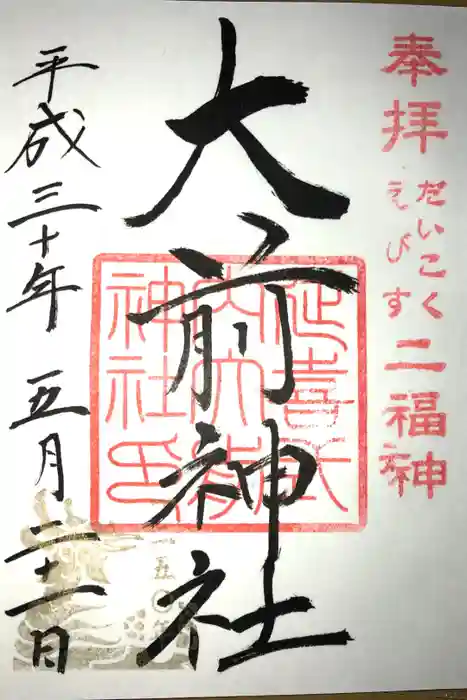 奉拝
だいこく
えびす
二福神
大前神社
延喜式
内大前
神社印
平成三十年 五月二十一日